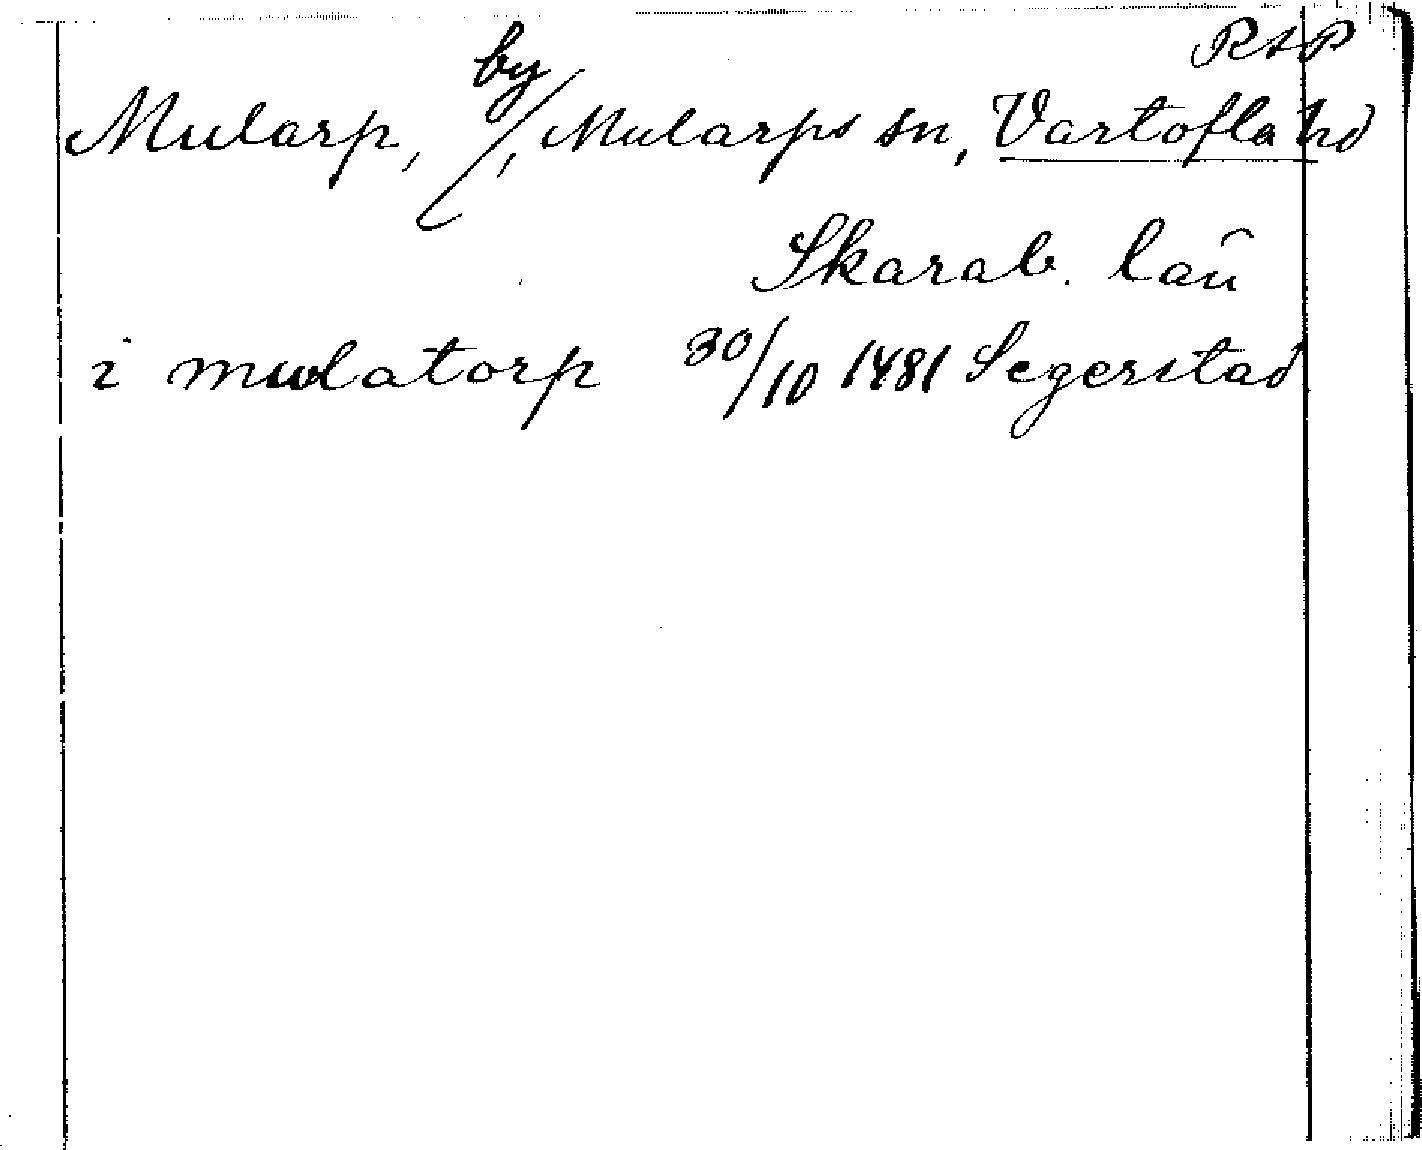 RAP
Mularp, by, Mularps sn, Vartofta hd
Skarab. län
i mulatorp 30/10 1481 Segerstad